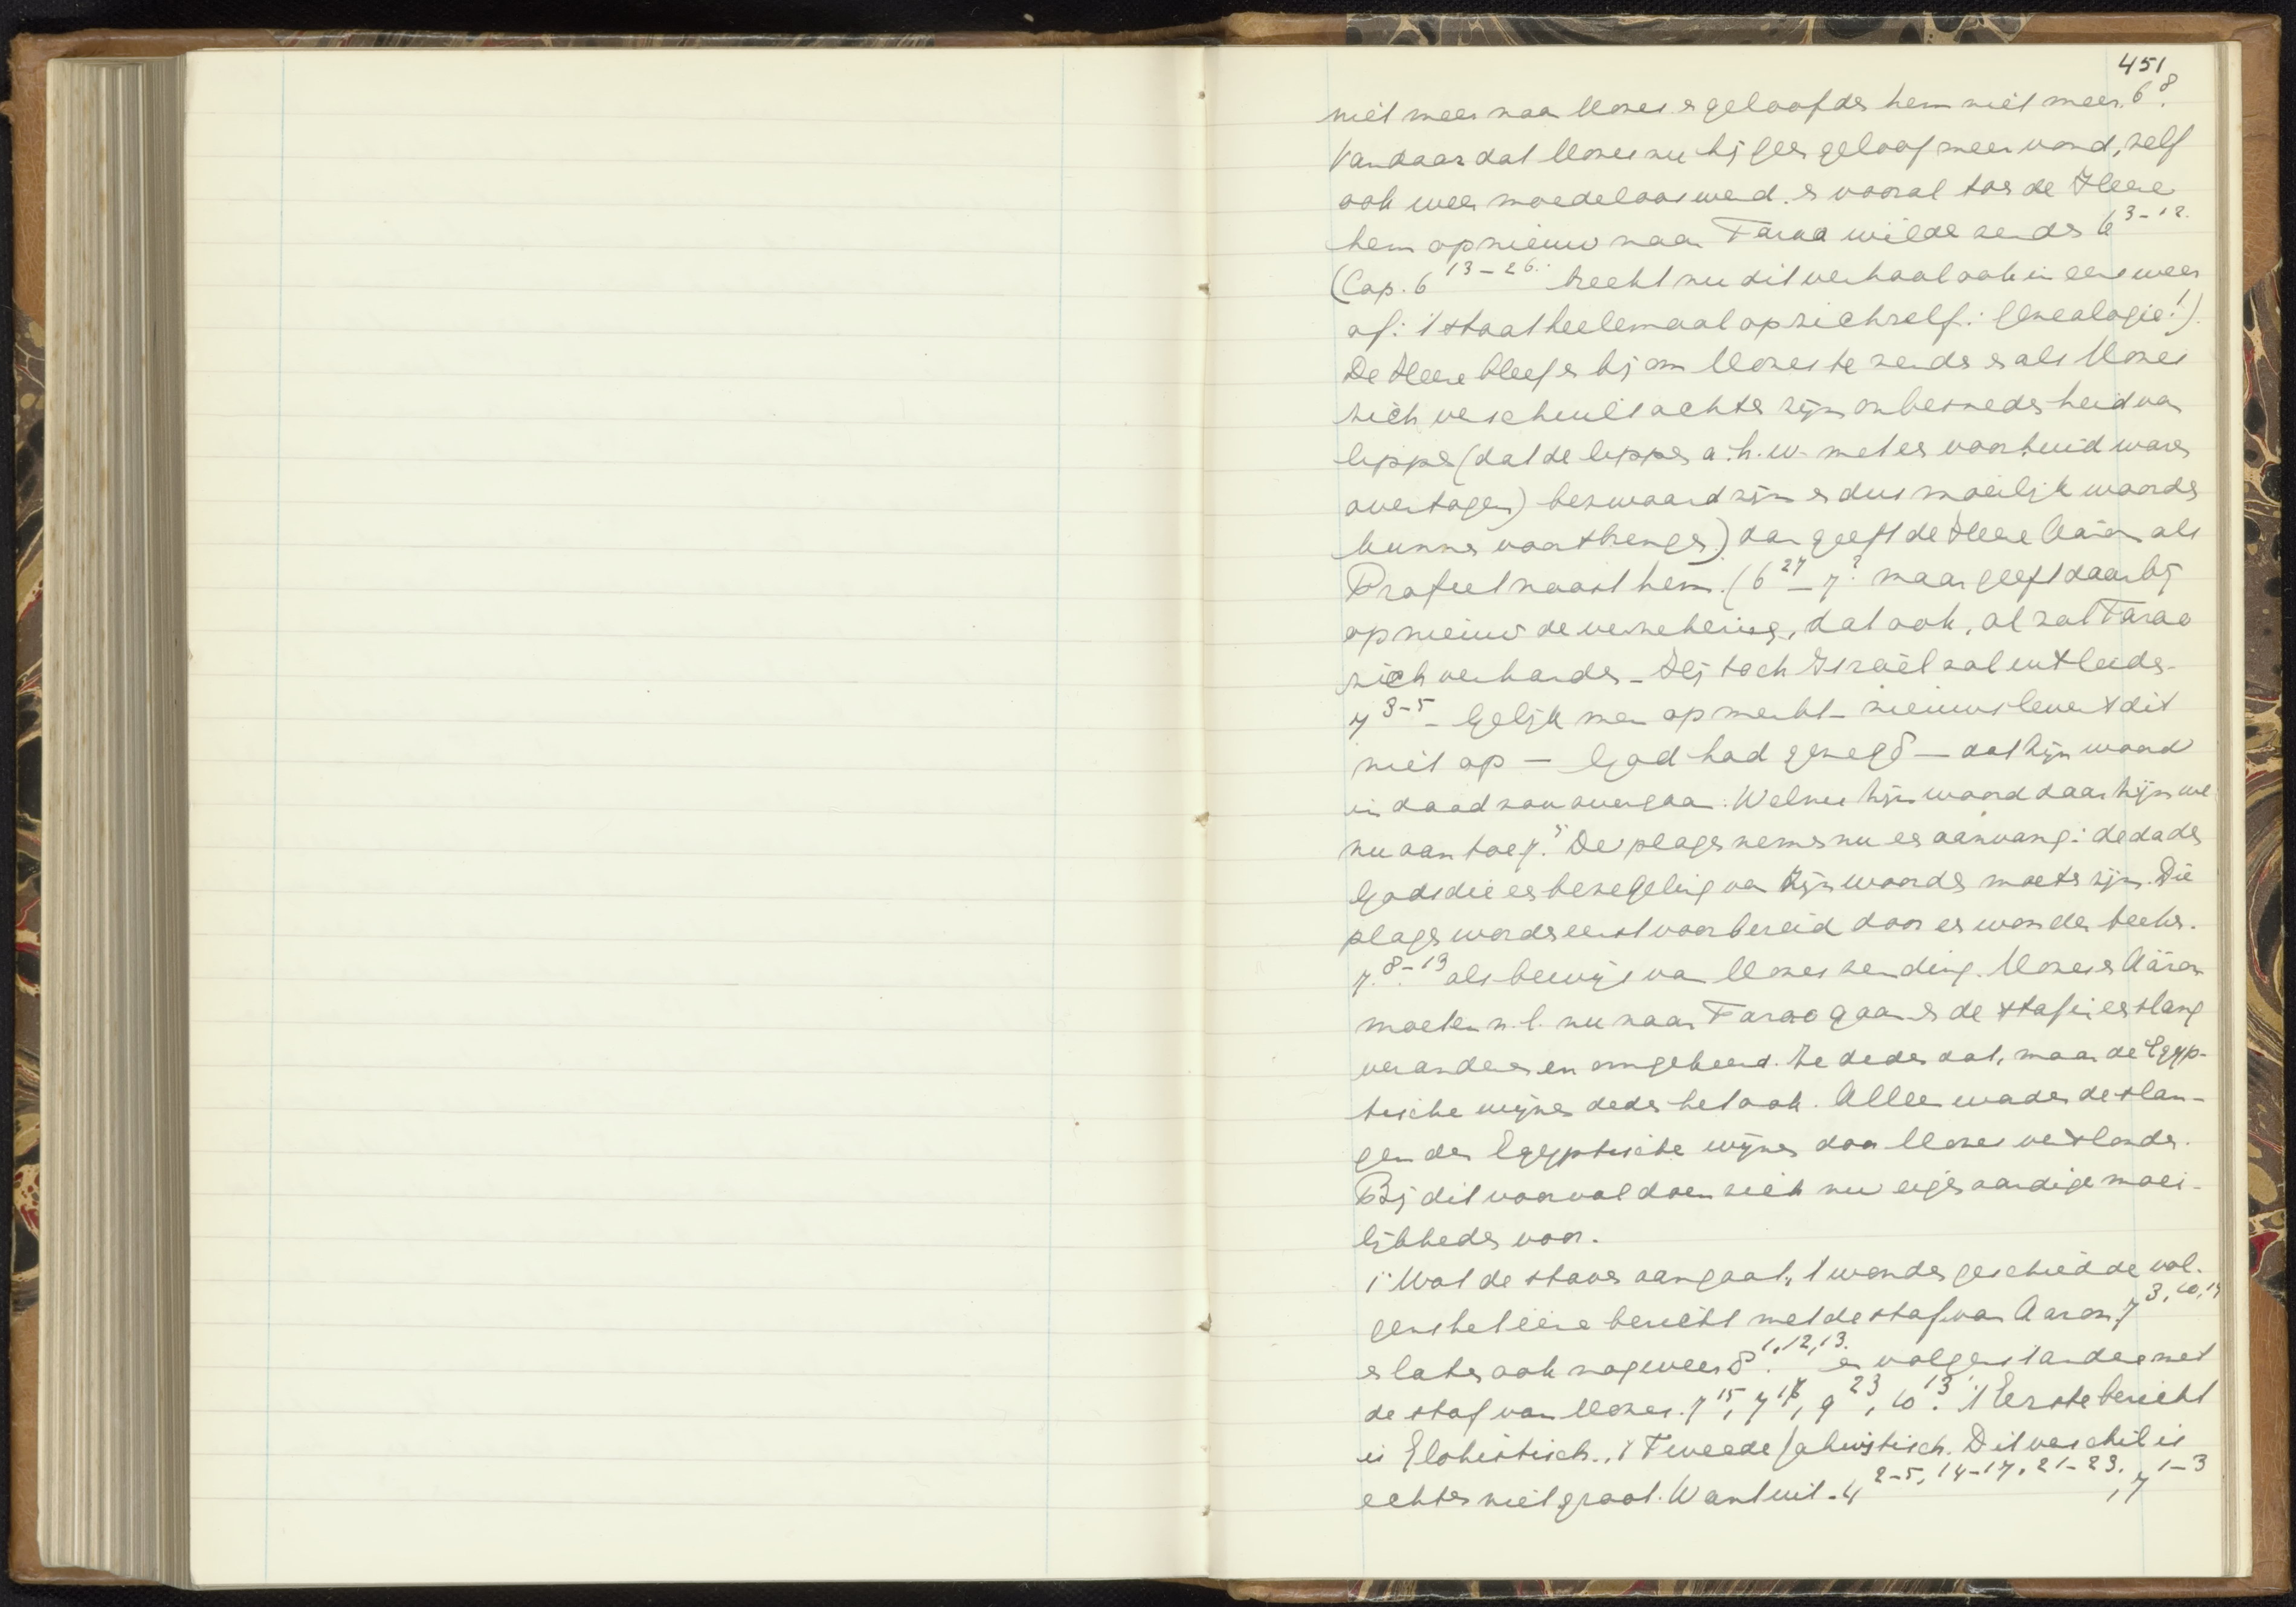 451
niet meer naar Mozes en geloofden hem niet meer. 6 8.
Vandaar dat Mozes nu hij geen geloof meer vond, zelf
ook weer moedeloos werd. en vooral toen de Heere
hem opnieuw naar Farao wilde zenden 6 3-12.
(Cap. 6 13-26. breekt nu dit verhaal ook in eens weer
af: 't staat heelemaal op zichzelf: genealogie!).
De Heere bleef er bij om Mozes te zenden en als Mozes
zich verschuilt achter zijn onbesnedenheid van
lippen (dat de lippen a.h.w. met een voorhuid waren
overtogen) bezwaard zijn en dus moeilijk woorden
kunnen voortbrengen.) dan geeft de Heere Aäron als
Profeet naast hem. (6 27 - 7 2. maar geeft daarbij
opnieuw de verzekering, dat ook, al zal Farao
zich verharden - Hij toch Israël zal uitleiden.
7 3-5 - Gelijk men opmerkt - nieuws levert dit
niet op — God had gezegd — dat Zijn woord
in daad zou overgaan. Welnu Zijn woord daar zijn we
nu aan toe 7. 5 De plagen nemen nu een aanvang: de daden
Gods die een bezegeling van Zijn woorden moeten zijn. Die
plagen worden eerst voorbereid door een wonderteeken.
7. 8-13 als bewijs van Mozes zending. Mozes en Aäron
moeten n.l. nu naar Farao gaan en de staf in een slang
veranderen en omgekeerd. Ze deden dat, maar de Egyp-
tische wijzen deden het ook. Alleen werden de slan-
gen der Egyptische wijzen door Mozes verslonden.
Bij dit voorval doen zich nu eigenaardige moei-
lijkheden voor.
1° Wat de staven aangaat, 't wonder geschiedde vol-
gens het ééne bericht met de staf van Aaron, 7 3, 10, 19
en later ook nog weer 8. 1, 12, 13. en volgens 't andere met
de staf van Mozes. 7 15, 7 17, 9 23, 10 13. 't Eerste bericht
is Elohistisch., 't Tweede Jahwistisch. Dit verschil is
echter niet groot. Want uit - 4 2-5, 14-17, 21-23, 7 1-3